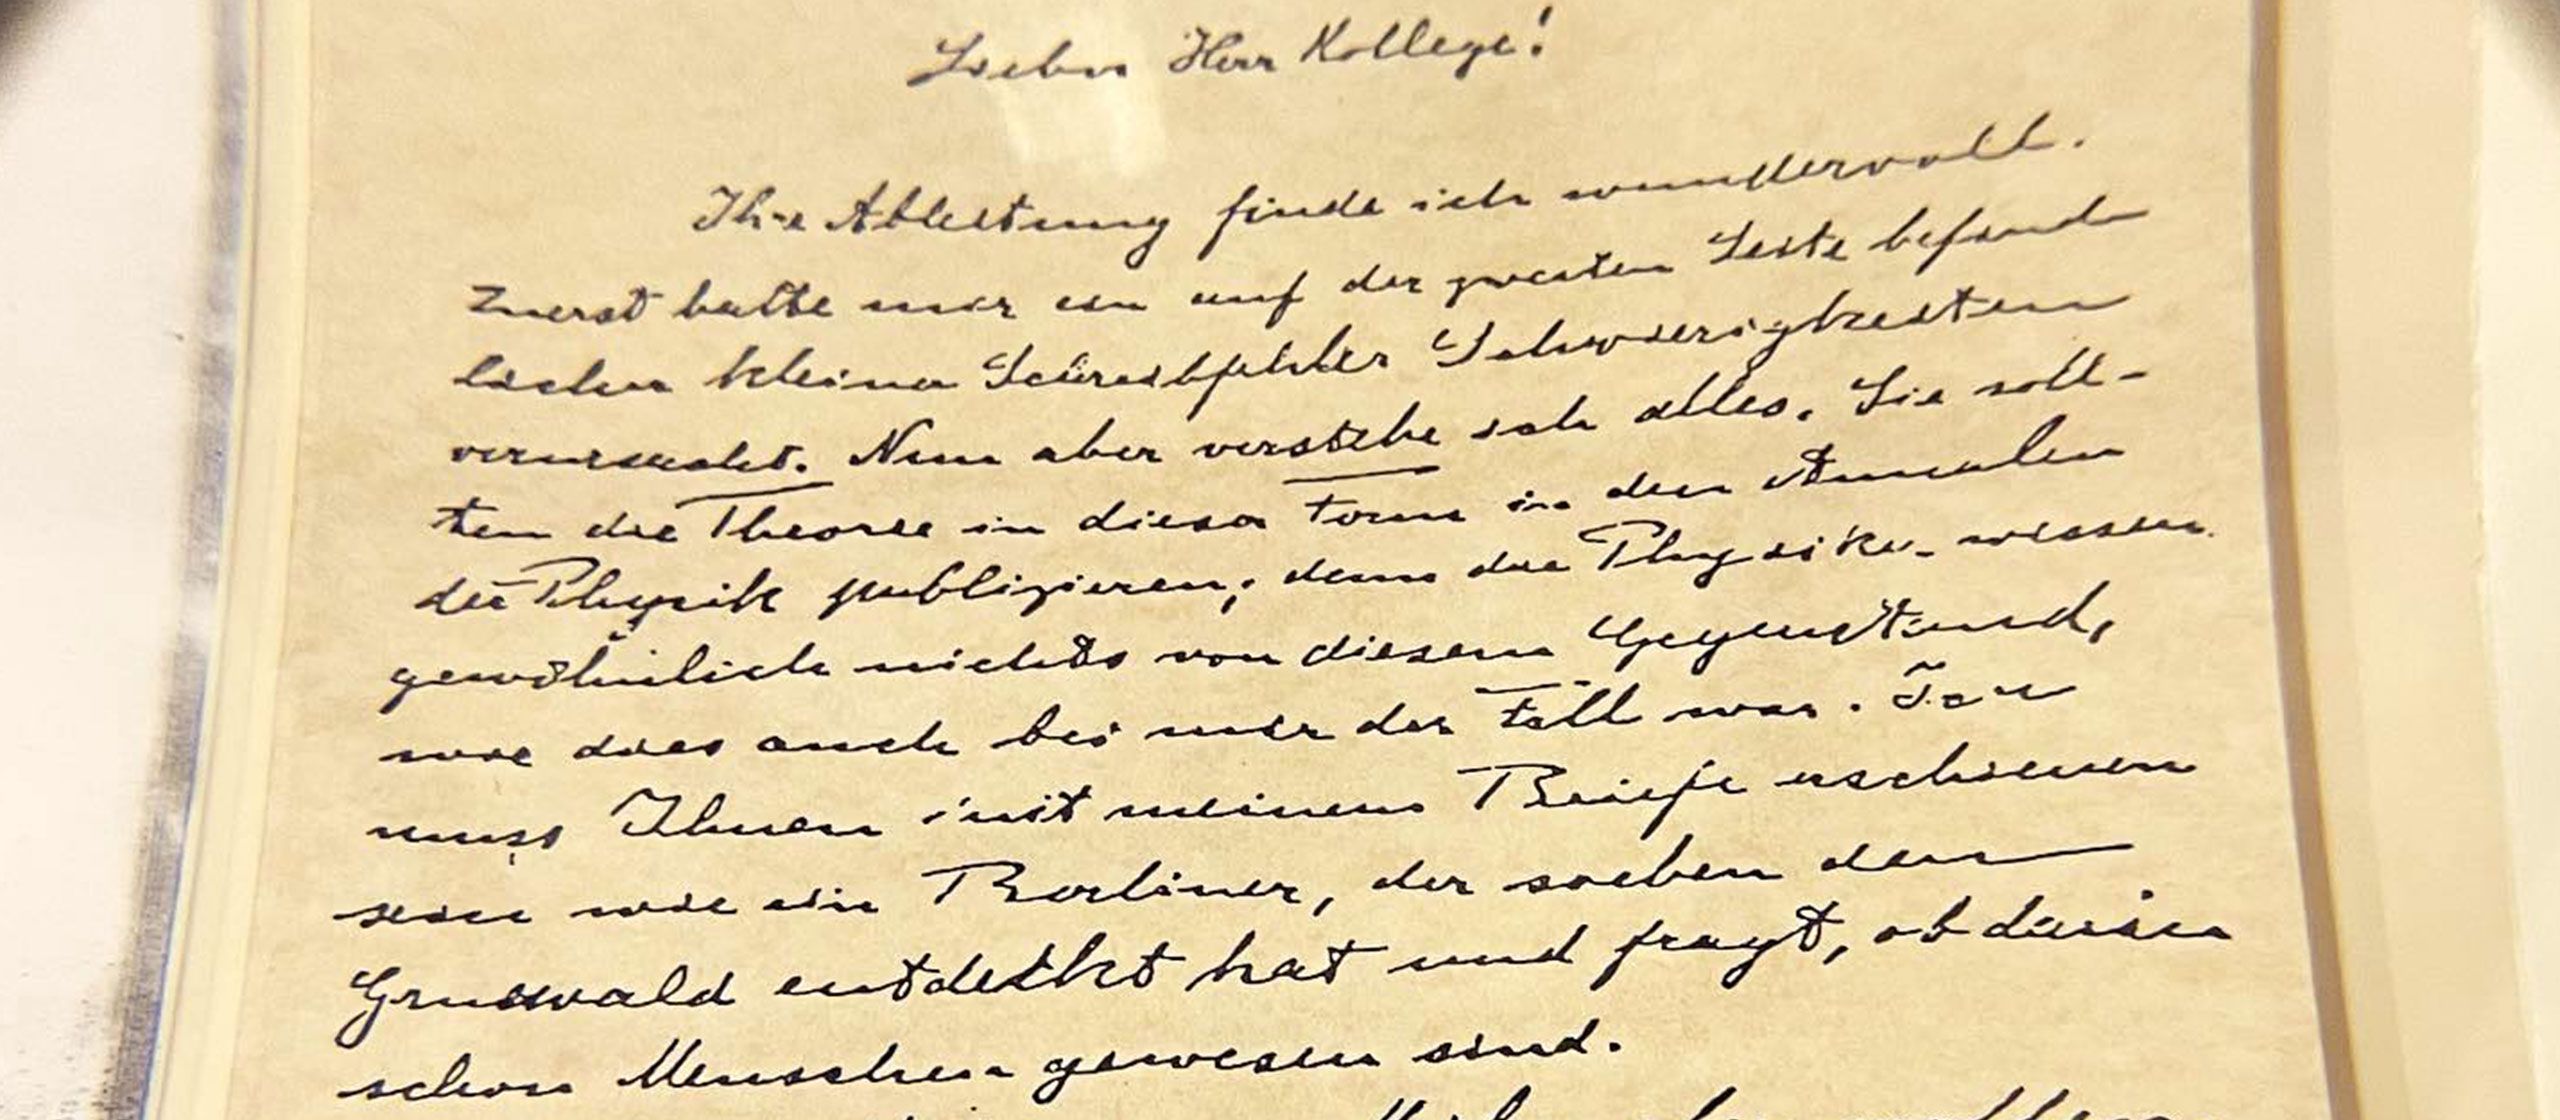 Lieber Herr Kollege!
Ihre Ableitung finde ich wundervoll.
Zuerst hatte mir ein auf der zweiten Seite befind-
licher kleiner Schreibfehler Schwierigkeiten
verursacht. Nun aber verstehe ich alles. Sie soll-
ten die Theorie in dieser Form in den Annalen
der Physik publizieren; denn die Physiker wissen
gewöhnlich nichts von diesem Gegenstand,
wie dies auch bei mir der Fall war. Ich
muss Ihnen mit meinem Briefe erschienen
sein wie ein Berliner, der soeben den
Grunewald entdeckt hat und fragt, ob darin
schon Menschen gewesen sind.